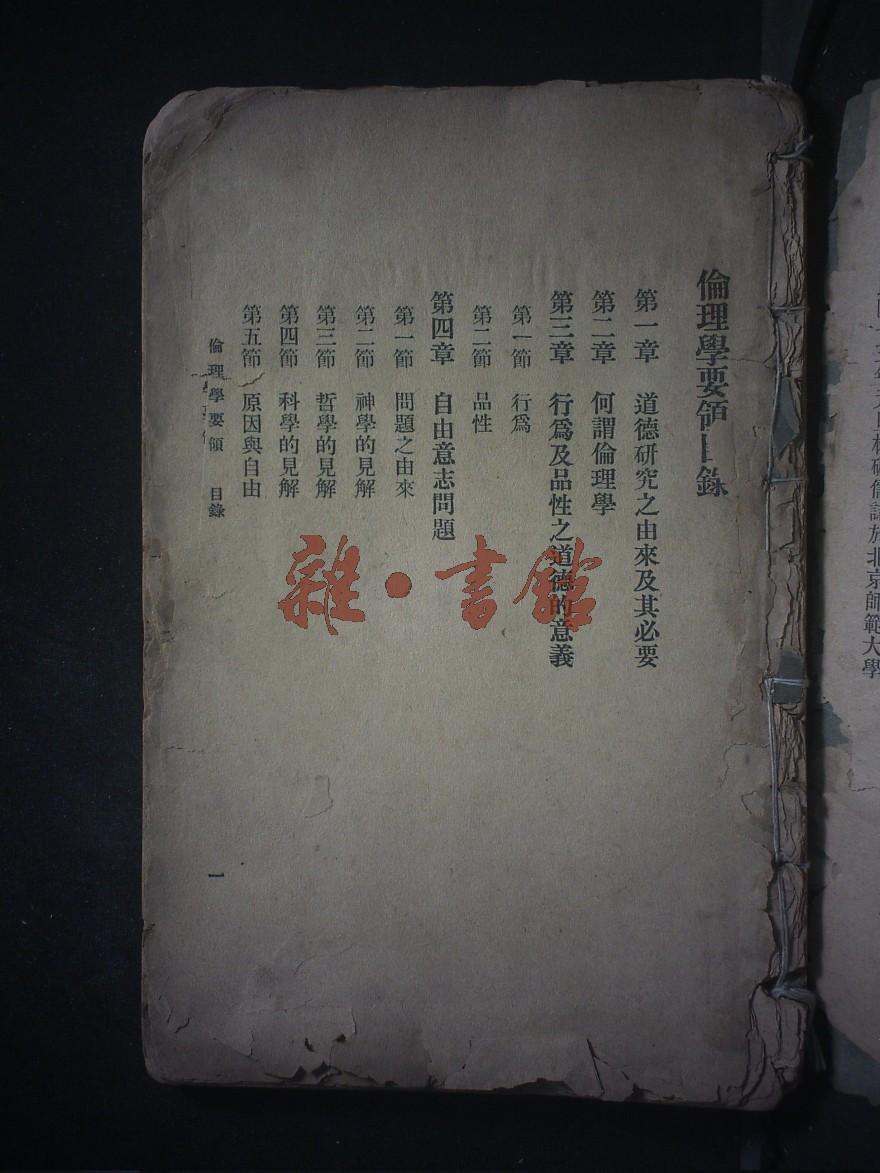 倫理學要領目錄
第一章　道德硏究之由來及其必要
第二章　何謂倫理學
第三章　行爲及品性之道德的意義
第一節　行爲
第二節　品性
第四章　自由意志問題
第一節　問題之由來
第二節　神學的見解
第三節　哲學的見解
第四節　科學的見解
第五節　原因與自由
倫理學要領　目錄　一
雜·書館
北京師範大學